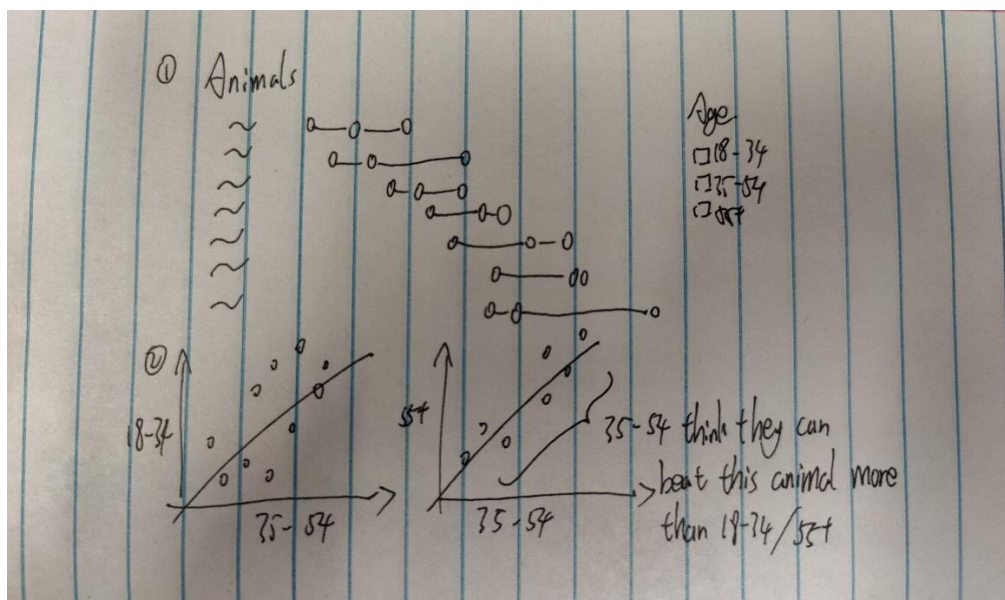 ① Animals
Age
18-34
35-54
55+
②
18-34
35-54
55+
35-54
35-54 think they can
beat this animal more
than 18-34/55+